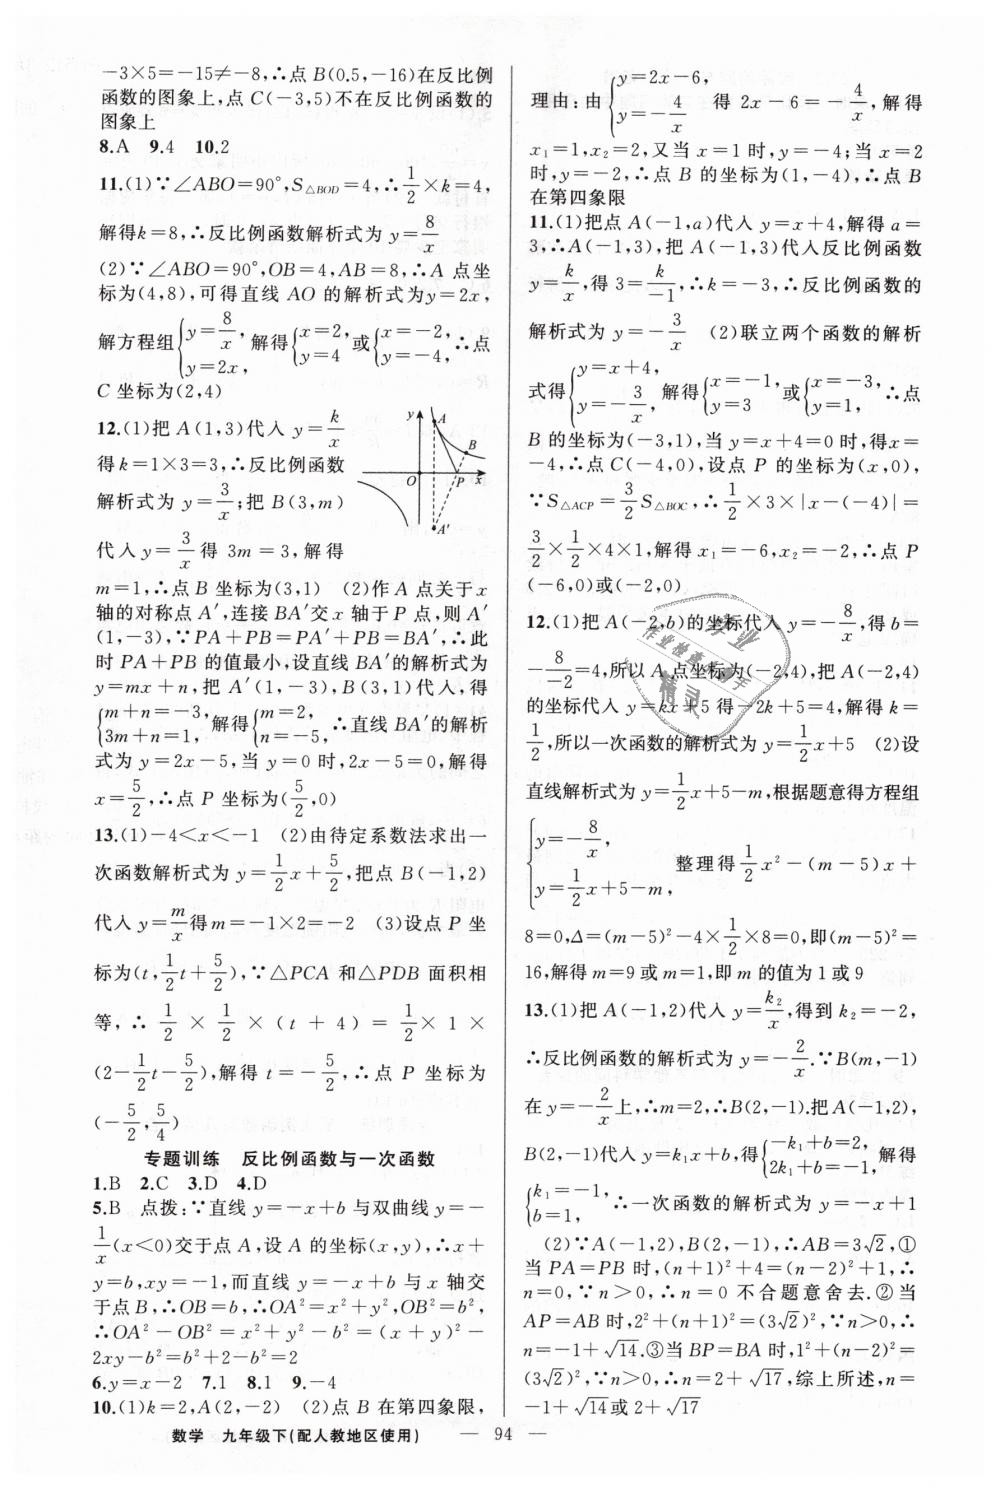 -3×5=-15≠-8,∴点 B(0.5,-16)在反比例
函数的图象上,点 C(-3,5)不在反比例函数的
图象上
8.A 9.4 10.2
11.(1)∵∠ABO=90°,S△BOD=4,∴1/2×k=4,
解得k=8,∴反比例函数解析式为 y=8/x
(2)∵∠ABO=90°,OB=4,AB=8,∴A 点坐
标为(4,8),可得直线 AO 的解析式为y=2x,
解方程组{y=8/x, y=2x, 解得{x=2, y=4 或{x=-2, y=-4, ∴点
C 坐标为(2,4)
12.(1)把 A(1,3)代入 y=k/x
得k=1×3=3,∴反比例函数
解析式为 y=3/x;把 B(3,m)
代入 y=3/x 得 3m=3,解得
y A B O P x A′
m=1,∴点 B 坐标为(3,1) (2)作 A 点关于x
轴的对称点 A′,连接 BA′交 x 轴于 P 点,则 A′
(1,-3),∵PA+PB=PA′+PB=BA′,∴此
时 PA+PB 的值最小,设直线 BA′的解析式为
y=mx+n,把 A′(1,-3),B(3,1)代入,得
{m+n=-3, 3m+n=1, 解得{m=2, n=-5, ∴直线 BA′的解析
式为 y=2x-5,当 y=0 时,2x-5=0,解得
x=5/2,∴点 P 坐标为(5/2,0)
13.(1)-4<x<-1 (2)由待定系数法求出一
次函数解析式为 y=1/2x+5/2,把点 B(-1,2)
代入 y=m/x得m=-1×2=-2 (3)设点 P 坐
标为(t,1/2t+5/2),∵△PCA 和△PDB 面积相
等,∴ 1/2 × 1/2 ×(t+4)= 1/2×1×
(2-1/2t-5/2),解得 t=-5/2,∴点 P 坐标为
(-5/2,5/4)
专题训练 反比例函数与一次函数
1.B 2.C 3.D 4.D
5.B 点拨:∵直线 y=-x+b 与双曲线 y=-
1/x(x<0)交于点 A,设 A 的坐标(x,y),∴x+
y=b,xy=-1,而直线 y=-x+b 与 x 轴交
于点 B,∴OB=b,∴OA²=x²+y²,OB²=b²,
∴OA²-OB²=x²+y²-b²=(x+y)²-
2xy-b²=b²+2-b²=2
6.y=x-2 7.1 8.1 9.-4
10.(1)k=2,A(2,-2) (2)点 B 在第四象限,
理由:由{y=2x-6, y=-4/x 得 2x-6=-4/x,解得
x₁=1,x₂=2,又当 x=1 时,y=-4;当 x=2
时,y=-2,∴点 B 的坐标为(1,-4),∴点 B
在第四象限
11.(1)把点 A(-1,a)代入 y=x+4,解得 a=
3,∴A(-1,3),把 A(-1,3)代入反比例函数
y=k/x,得 3=k/-1,∴k=-3,∴反比例函数的
解析式为 y=-3/x (2)联立两个函数的解析
式得{y=x+4, y=-3/x, 解得{x=-1, y=3 或{x=-3, y=1, ∴点
B 的坐标为(-3,1),当 y=x+4=0 时,得x=
-4,∴点 C(-4,0),设点 P 的坐标为(x,0),
∵S△ACP=3/2S△BOC,∴1/2×3×|x-(-4)|=
3/2×1/2×4×1,解得 x₁=-6,x₂=-2,∴点 P
(-6,0)或(-2,0)
12.(1)把 A(-2,b)的坐标代入 y=-8/x,得 b=
-8/-2=4,所以 A 点坐标为(-2,4),把 A(-2,4)
的坐标代入 y=kx+5 得-2k+5=4,解得 k=
1/2,所以一次函数的解析式为 y=1/2x+5 (2)设
直线解析式为 y=1/2x+5-m,根据题意得方程组
{y=-8/x, y=1/2x+5-m, 整理得1/2x²-(m-5)x+
8=0,Δ=(m-5)²-4×1/2×8=0,即(m-5)²=
16,解得 m=9 或 m=1,即 m 的值为 1 或 9
13.(1)把 A(-1,2)代入 y=k₂/x,得到 k₂=-2,
∴反比例函数的解析式为 y=-2/x.∵B(m,-1)
在 y=-2/x上,∴m=2,∴B(2,-1).把 A(-1,2),
B(2,-1)代入 y=k₁x+b,得{-k₁+b=2, 2k₁+b=-1, 解得
{k₁=-1, b=1, ∴一次函数的解析式为 y=-x+1
(2)∵A(-1,2),B(2,-1),∴AB=3√2,①
当 PA=PB 时,(n+1)²+4=(n-2)²+1,∴
n=0,∵n>0,∴n=0 不合题意舍去.②当
AP=AB 时,2²+(n+1)²=(3√2)²,∵n>0,∴
n=-1+√14.③当 BP=BA 时,1²+(n-2)²=
(3√2)²,∵n>0,∴n=2+√17,综上所述,n=
-1+√14或 2+√17
作业
作业检查小助手
精灵
数学 九年级下(配人教地区使用) — 94 —